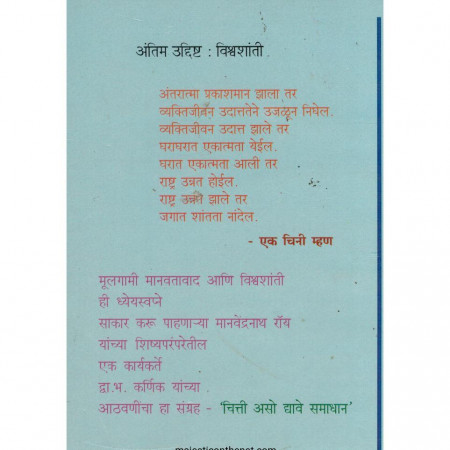 अंतिम उद्दिष्ट : विश्वशांती
अंतरात्मा प्रकाशमान झाला तर
व्यक्तिजीवन उदात्ततेने उजळून निघेल.
व्यक्तिजीवन उदात्त झाले तर
घराघरात एकात्मता येईल.
घरात एकात्मता आली तर
राष्ट्र उन्नत होईल.
राष्ट्र उन्नत झाले तर
जगात शांतता नांदेल.
- एक चिनी म्हण
मूलगामी मानवतावाद आणि विश्वशांती
ही ध्येयस्वप्ने
साकार करू पाहणाऱ्या मानवेंद्रनाथ रॉय
यांच्या शिष्यपरंपरेतील
एक कार्यकर्ते
द्वा.भ. कर्णिक यांच्या
आठवणींचा हा संग्रह - 'चित्ती असो द्यावे समाधान'